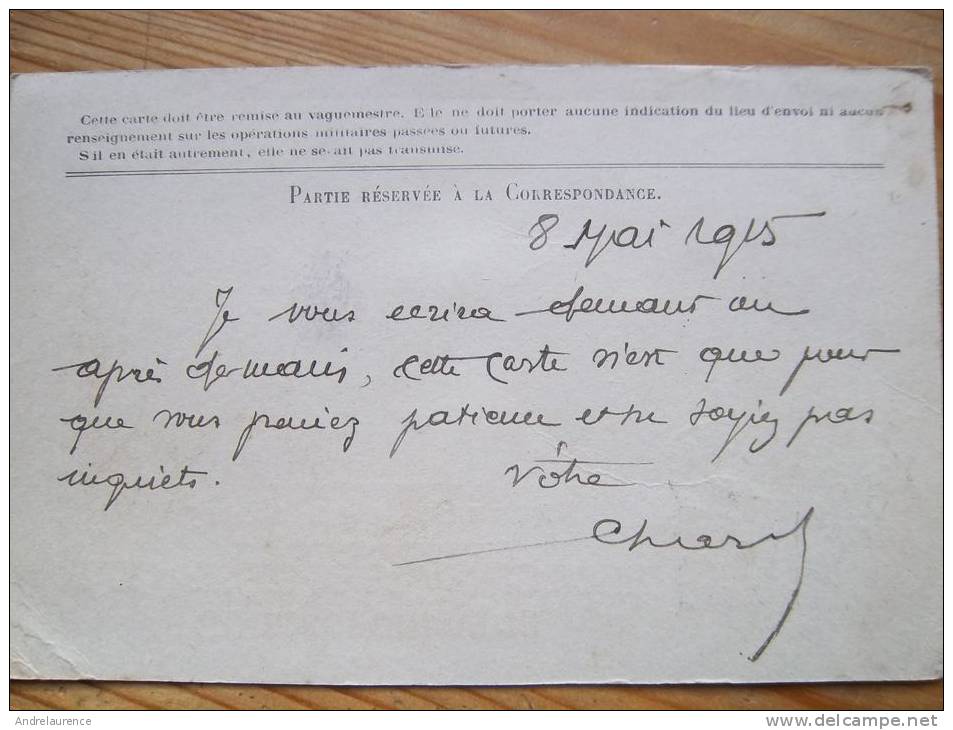 Cette carte doit être remise au vaguemestre. E le ne doit porter aucune indication du lieu d'envoi ni aucun
renseignement sur les opérations militaires passées ou futures.
S'il en était autrement, elle ne serait pas transmise.
PARTIE RÉSERVÉE À LA CORRESPONDANCE.
8 Mai 1915
Je vous ecrirai demain ou
après demain, cette carte n'est que pour
que vous preniez patience et ne soyiez pas
inquiets. Vôtre
Andrelaurence
www.delcampe.net